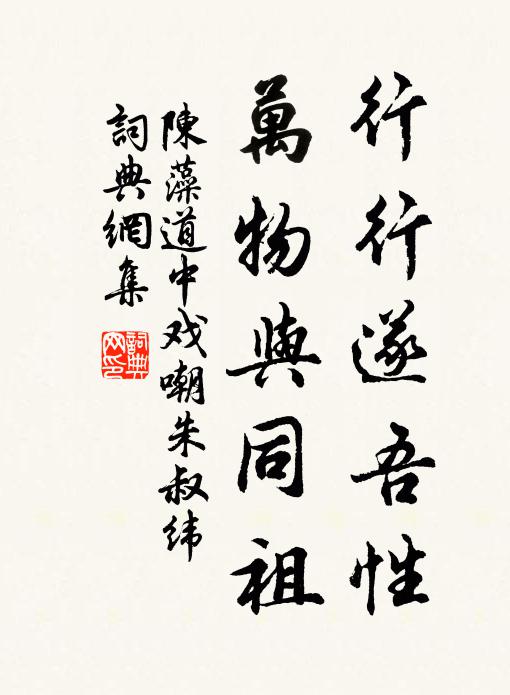 行行遂吾性
萬物與同祖
陳藻道中戏嘲朱叔緯
詞典網集
詞典
网印